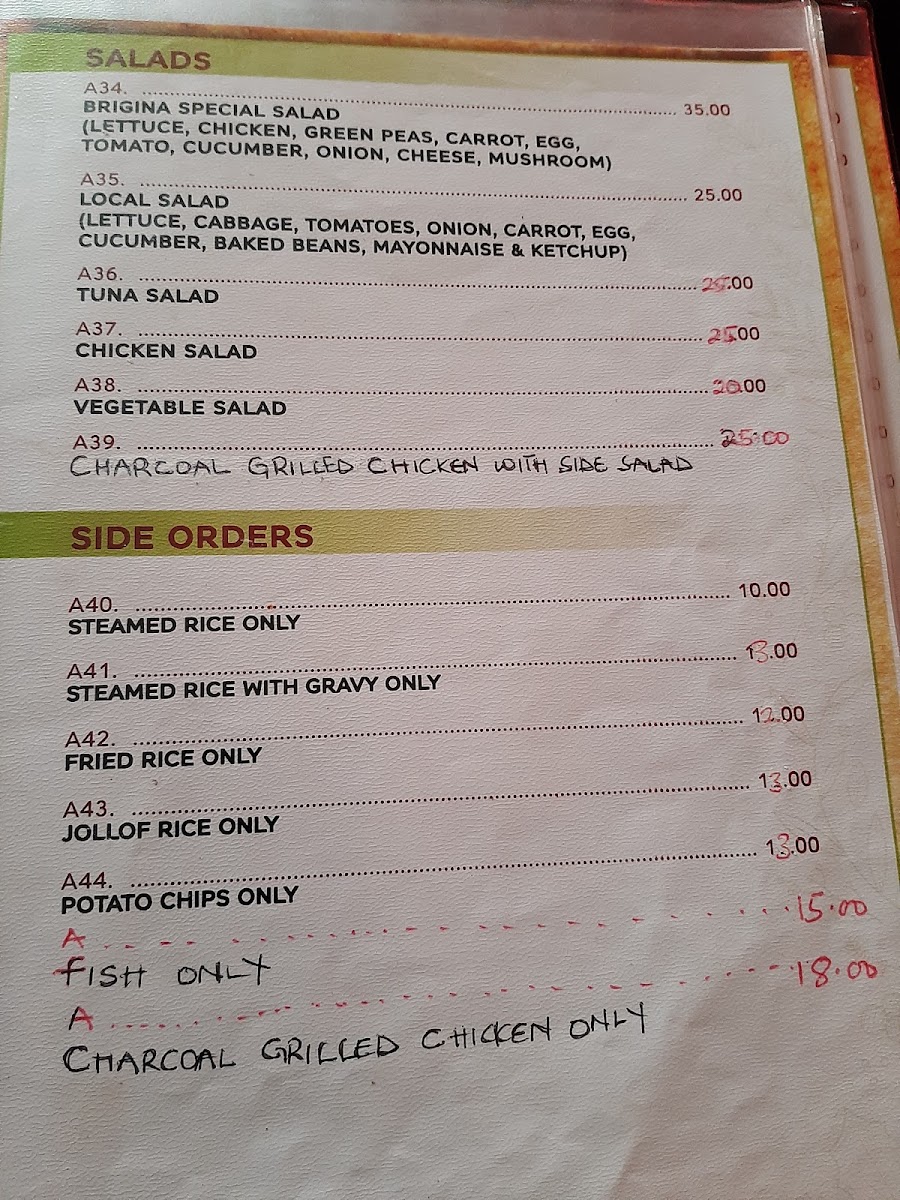 SALADS
A34. ........................ 35.00
BRIGINA SPECIAL SALAD
(LETTUCE, CHICKEN, GREEN PEAS, CARROT, EGG,
TOMATO, CUCUMBER, ONION, CHEESE, MUSHROOM)
A35. ........................ 25.00
LOCAL SALAD
(LETTUCE, CABBAGE, TOMATOES, ONION, CARROT, EGG,
CUCUMBER, BAKED BEANS, MAYONNAISE & KETCHUP)
A36. ........................
TUNA SALAD
A37. ........................ 25.00
CHICKEN SALAD
A38. ........................ 20.00
VEGETABLE SALAD
A39. ........................ 25.00
CHARCOAL GRILLED CHICKEN WITH SIDE SALAD
SIDE ORDERS
A40. ........................ 10.00
STEAMED RICE ONLY
A41. ........................ 13.00
STEAMED RICE WITH GRAVY ONLY
A42. ........................ 12.00
FRIED RICE ONLY
A43. ........................ 13.00
JOLLOF RICE ONLY
A44. ........................ 13.00
POTATO CHIPS ONLY
A ........................ 15.00
FISH ONLY
A ........................ 18.00
CHARCOAL GRILLED CHICKEN ONLY